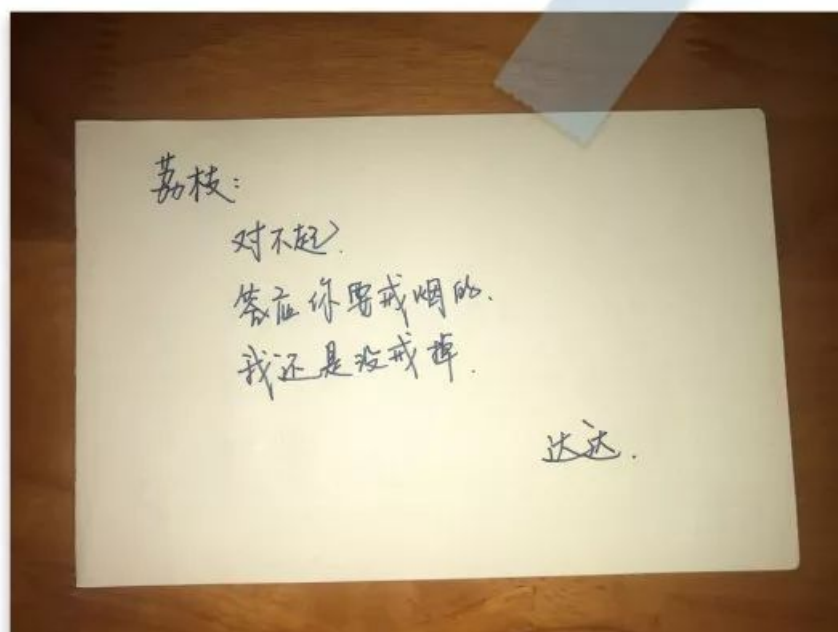 荔枝：
对不起.
答应你要戒烟的.
我还是没戒掉.
达达.